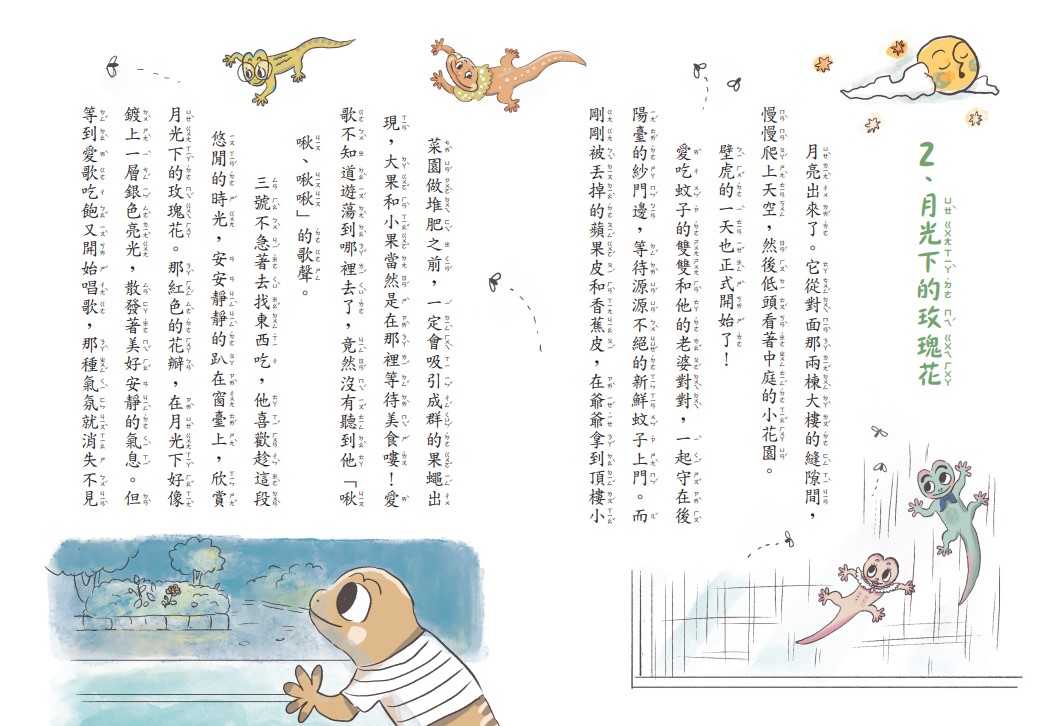 2、月光下的玫瑰花
月亮出來了。它從對面那兩棟大樓的縫隙間，
慢慢爬上天空，然後低頭看著中庭的小花園。
壁虎的一天也正式開始了！
愛吃蚊子的雙雙和他的老婆對對，一起守在後
陽臺的紗門邊，等待源源不絕的新鮮蚊子上門。而
剛剛被丟掉的蘋果皮和香蕉皮，在爺爺拿到頂樓小
菜園做堆肥之前，一定會吸引成群的果蠅出
現，大果和小果當然是在那裡等待美食嘍！愛
歌不知道遊蕩到哪裡去了，竟然沒有聽到他「啾
啾、啾啾」的歌聲。
三號不急著去找東西吃，他喜歡趁這段
悠閒的時光，安安靜靜的趴在窗臺上，欣賞
月光下的玫瑰花。那紅色的花瓣，在月光下好像
鍍上一層銀色亮光，散發著美好安靜的氣息。但
等到愛歌吃飽又開始唱歌，那種氣氛就消失不見